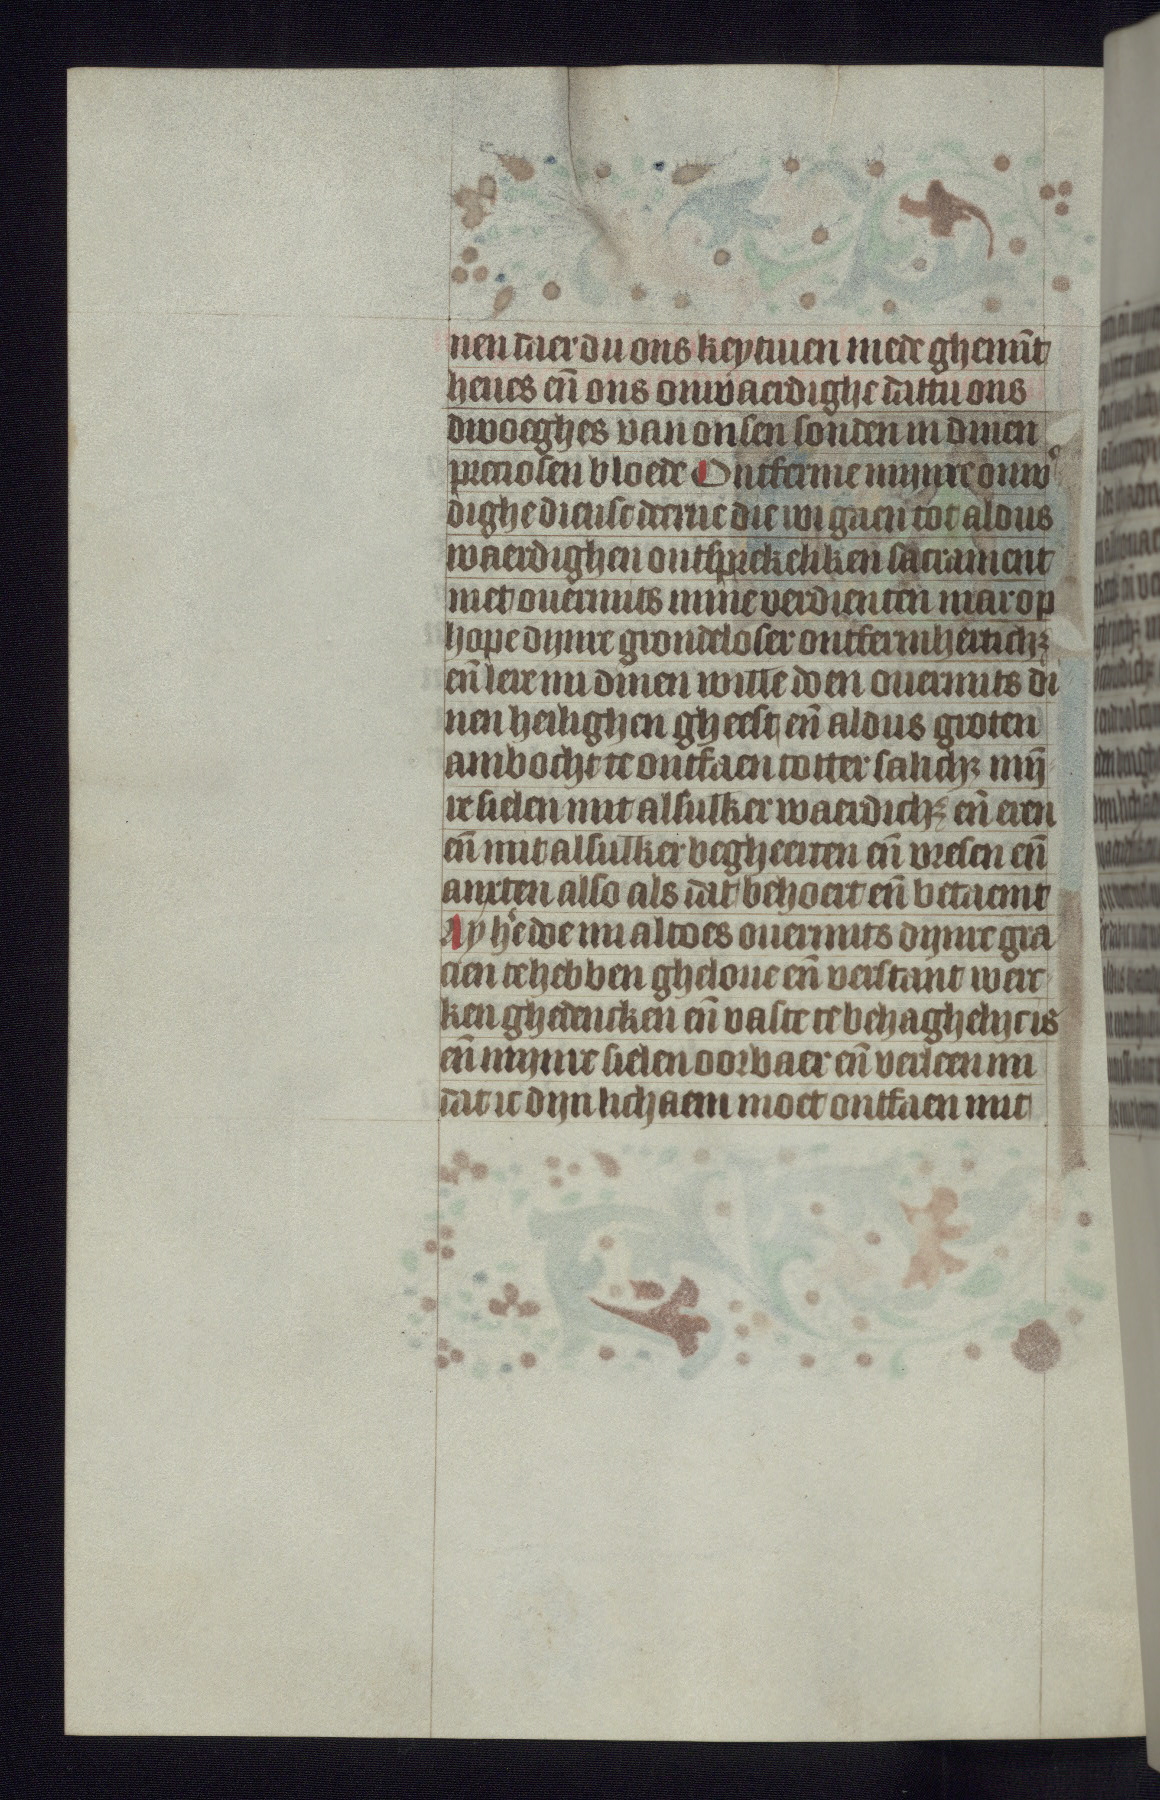 nen daer du ons keytiuen mede ghemīt
heues eñ ons onwaerdighe dattu ons
dwoeghes van onsen sonden in dinen
preciosen bloede Ontferme mijnre onw᷒
dighe dienst deerne die wi gaen tot aldus
waerdighen ontsprekeliken sacrament
niet ouermits mine verdienten mar op
hope dijnre grondeloser ontfermhertichꝫ
eñ lere mi dinen wille doen ouermits di
nen heilighen gheest eñ aldus groten
ambocht te ontfaen totter salichꝫ mijn̄
re sielen mit alsulker waerdichꝫ eñ eren
eñ mit alsulker begheerten eñ vresen eñ
anxten also als dat behoert eñ betaemt
Ay he᷒ doe mi altoes ouermits dijnre gra
cien te hebben gheloue eñ verstant werc
ken ghedencken eñ vaste te behaghelijc is
eñ mijnre sielen oorbaer eñ verleen mi
dat ic dijn lichaem moet ontfaen mit